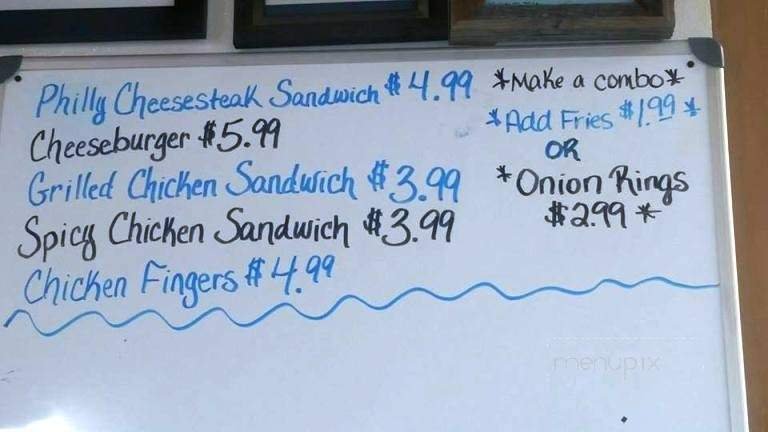 Philly Cheesesteak Sandwich $4.99
Cheeseburger $5.99
Grilled Chicken Sandwich $3.99
Spicy Chicken Sandwich $3.99
Chicken Fingers $4.99
*Make a combo*
*Add Fries $1.99*
OR
*Onion Rings
$2.99*
menupix